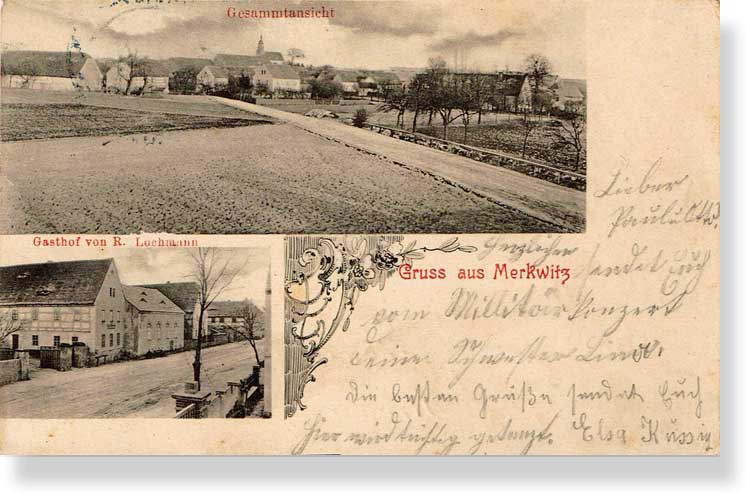 Gesammtansicht
Gasthof von R. Lochmann
Gruss aus Merkwitz
Lieber
Paul u. Otto,
Herzlichen
sendet Euch
vom Militärkonzert
Deine Schwester Lina.
Die besten Grüße sendet Euch
Hier wird tüchtig getanzt. Elsa Küssig